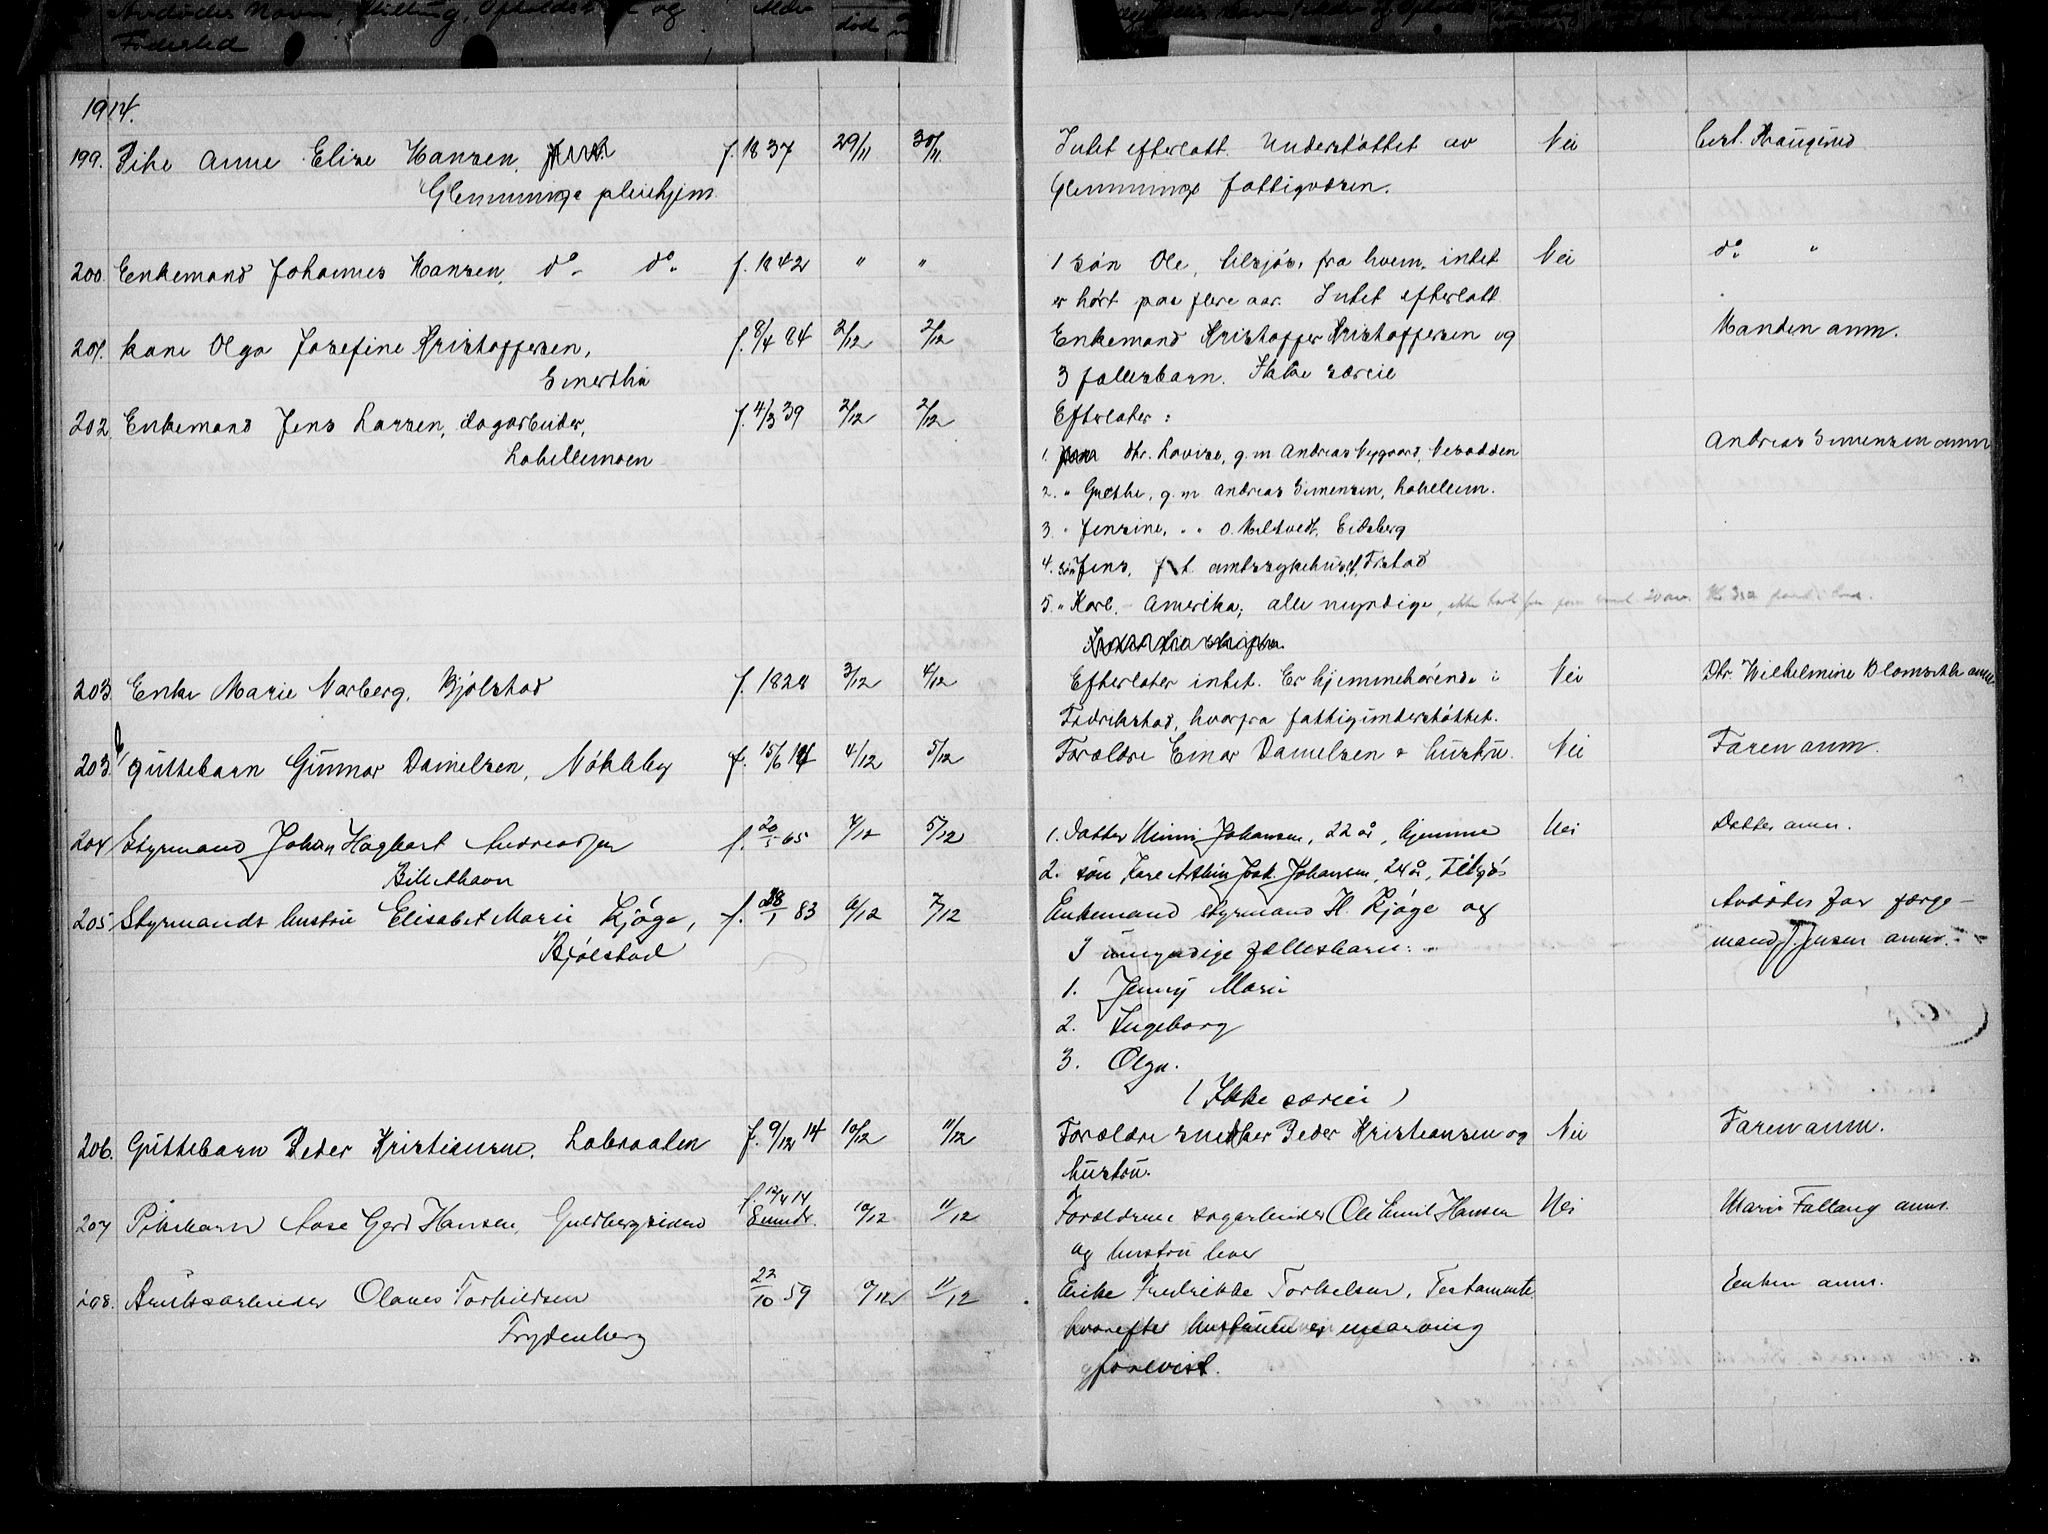 Avdødes Navn, Stilling, Opholdssted og
Fødested
Alder
død
1914.
199. Pike Anne Elise Hansen, f. 1837 29/11 30/11 Intet efterlatt. Understøttet av Nei
Glemminge pleiehjem. Glemminge fattigvæsen.
200. Enkemand Johannes Hansen, do. do. f. 1842 " " 1 søn Ole, tilsjøs, fra hvem intet Nei do. "
er hørt paa flere aar. Intet efterlatt.
201. Kone Olga Josefine Kristoffersen, f. 8/4 84 2/12 2/12 Enkemand Kristoffer Kristoffersen og Manden anm.
3 fællesbarn. Ikke særeie
202. Enkemand Jens Larsen, dagarbeider, f. 4/3 39 2/12 2/12 Efterlater:
Lahellemoen
1. Dtr. Lovise, g.m Andreas Nygaard, Nesodden Andreas Simensen anm
2. " Grethe, g.m Andreas Simensen, Lahellem.
3. " Jensine, " " O. Melstvedt, Eidsberg
4. søn Jens, f.t. amtssykehuset, F.stad
5. " Karl, - Amerika, alle myndige,
203. Enke Marie Narberg, Bjølstad f. 1828 3/12 4/12 Efterlater intet. Er hjemmehørende i Nei Dtr. Wilhelmine Blomseth anm.
Fredrikstad, hvorfra fattigunderstøttet.
203. b/ Guttebarn Gunnar Danielsen, Nøkleby f. 15/6 14 4/12 5/12 Forældre Einar Danielsen & hustru. Nei Faren anm.
204 Styrmand Johan Hagbart Andreassen f. 20/5 65 4/12 5/12 1. Datter Minni Johansen, 22 år, hjemme Nei Datter anm.
2. søn Kare Arthin Joak. Johansen, 24 år, Tilsjøs
205 Styrmands hustru Elisabet Marie Kjøge, f. 28/1 83 6/12 7/12 Enkemand styrmand H. Kjøge og Avdødes far færge-
Bjølstad 3 umyndige fællesbarn: mand J. Jensen anm.
1. Jenny Marie
2. Ingeborg
3. Olga.
(Ikke særeie)
206. Guttebarn Peder Kristiansen, Labraaten f. 9/12 14 10/12 11/12 Forældre snedker Peder Kristiansen og Nei Faren anm.
hustru.
207 Pikebarn Aase Gerd Hansen, Guldbergsiden f. 12/4 14 10/12 11/12 Forældrene sagarbeider Ole Emil Hansen Nei Marie Fallang anm.
og hustru lever
208. Brugsarbeider Olaves Torkildsen 22/10 59 9/12 11/12 Enke Fredrikke Torkelsen. Testamente Enken anm.
Frydenberg hvorefter hustruen er enearving
forevist.